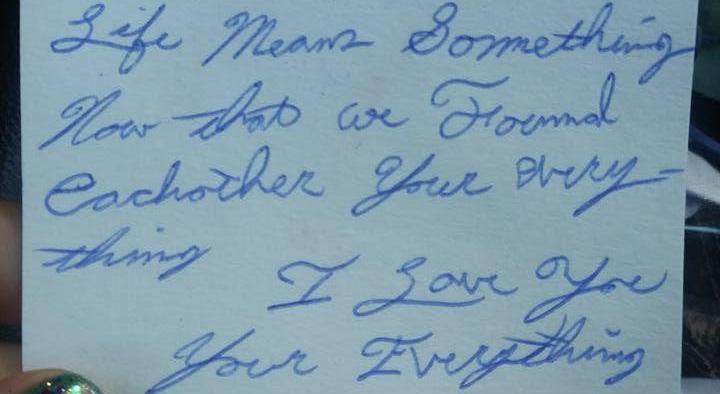 Life Means Something
Now that we Found
Eachother Your Every-
thing
I Love You
Your Everything